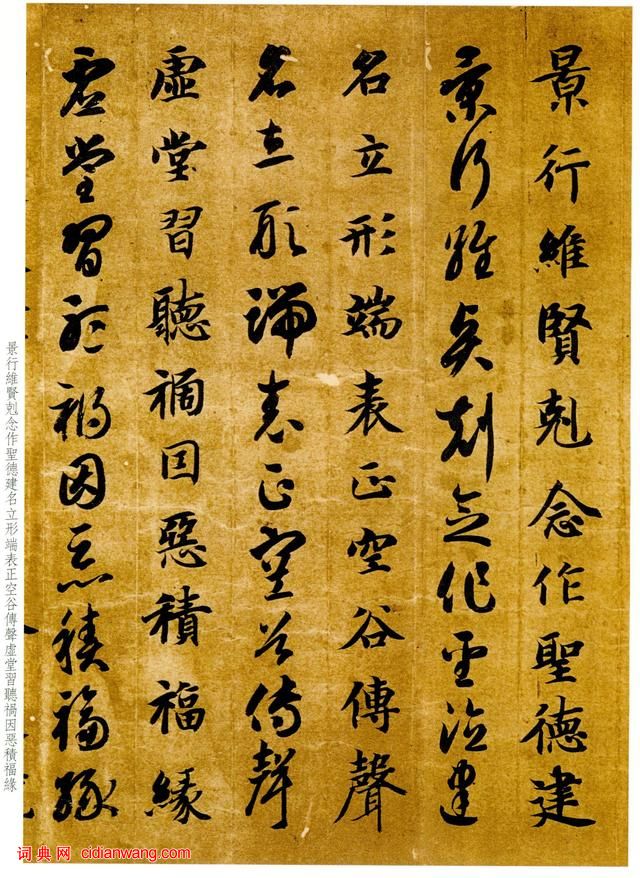 景行維賢剋念作聖德建
景行維賢剋念作聖德建
名立形端表正空谷傳聲
名立形端表正空谷傳聲
虛堂習聽禍因惡積福緣
虛堂習聽禍因惡積福緣
景行維賢剋念作聖德建名立形端表正空谷傳聲虛堂習聽禍因惡積福緣
词典网 cidianwang.com